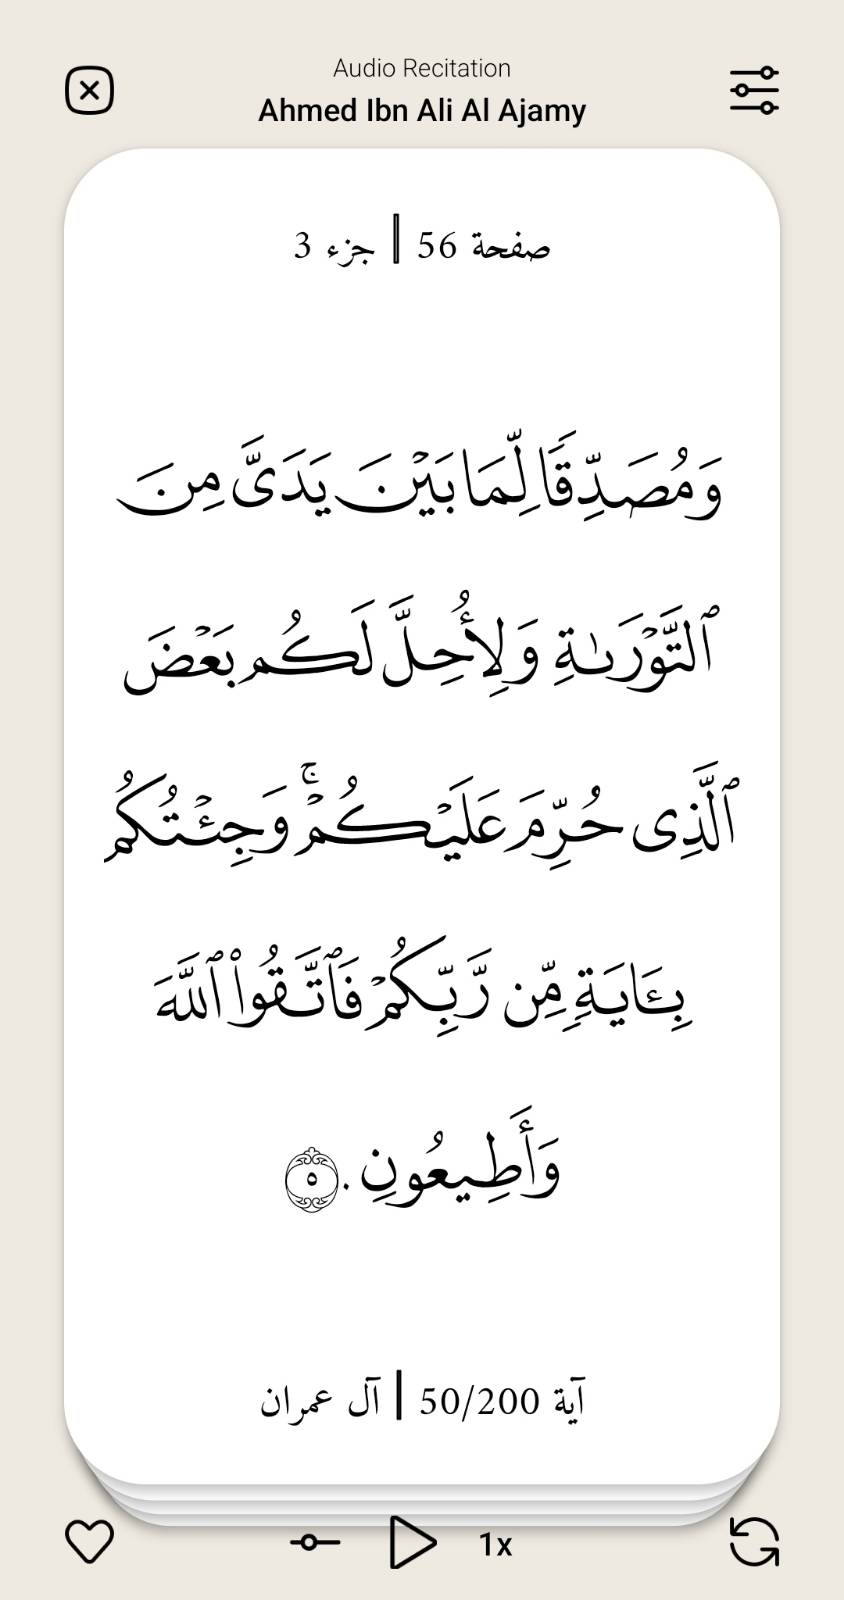 Audio Recitation
Ahmed Ibn Ali Al Ajamy
صفحة 56 | جزء 3
وَمُصَدِّقًا لِّمَا بَيْنَ يَدَىَّ مِنَ
ٱلتَّوْرَىٰةِ وَلِأُحِلَّ لَكُم بَعْضَ
ٱلَّذِى حُرِّمَ عَلَيْكُمْ ۚ وَجِئْتُكُم
بِـَٔايَةٍ مِّن رَّبِّكُمْ فَٱتَّقُوا۟ ٱللَّهَ
وَأَطِيعُونِ ٠ ٥
آية 50/200 | آل عمران
1x